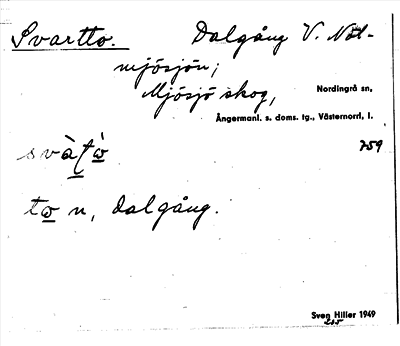 Svartto. Dalgång V. Nol-
mjösjön;
Mjösjö skog,
Nordingrå sn,
Ångermanl. s. doms. tg., Västernorrl. l.
759
to̲ n, dalgång.
Sven Hiller 1949